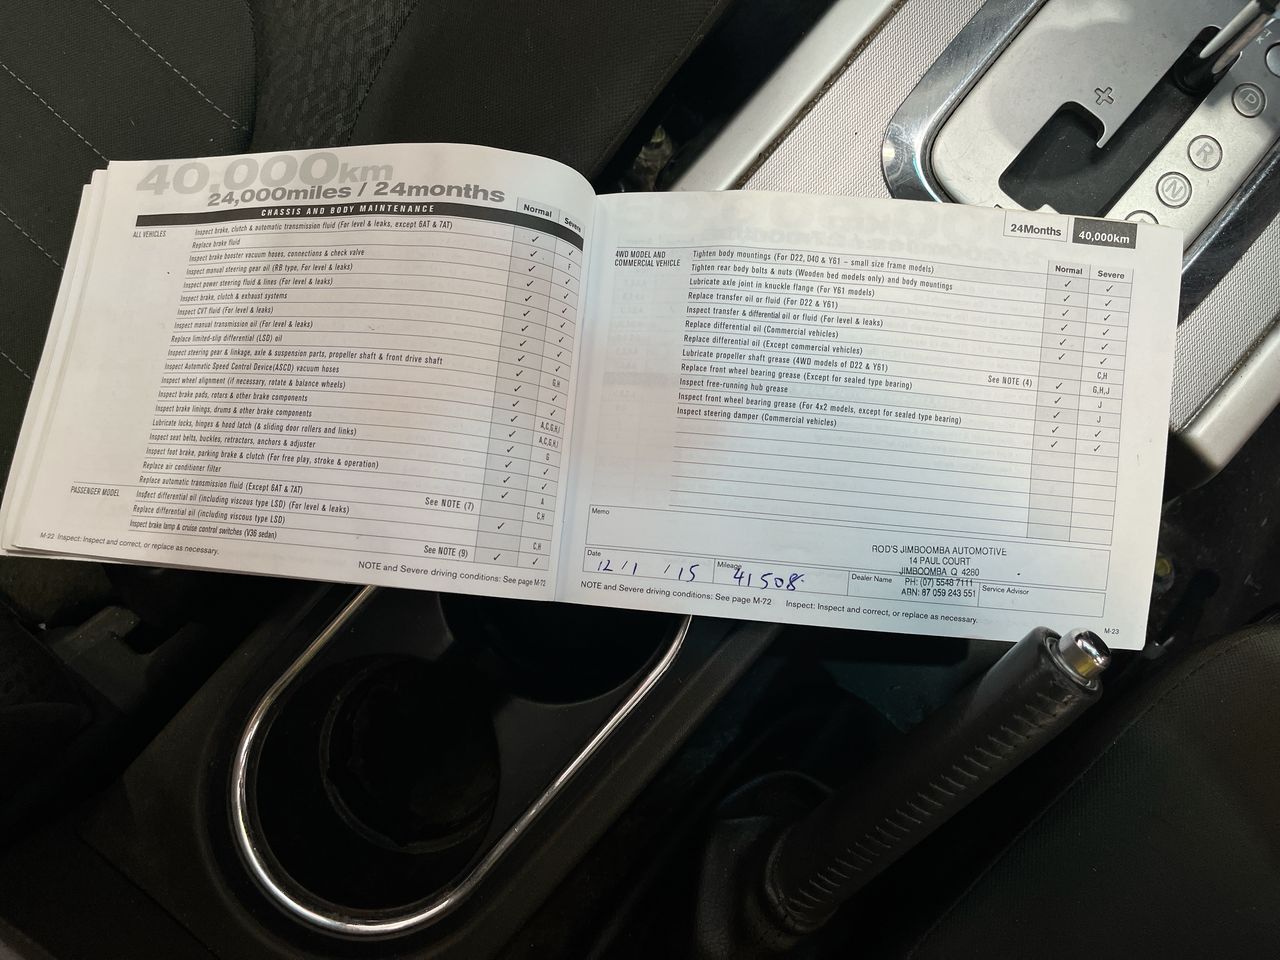 40,000km
24,000miles / 24months
CHASSIS AND BODY MAINTENANCE
Normal
Severe
ALL VEHICLES
Inspect brake, clutch & automatic transmission fluid (For level & leaks, except 6AT & 7AT)
Replace brake fluid
Inspect brake booster vacuum hoses, connections & check valve
Inspect manual steering gear oil (RB type, For level & leaks)
Inspect power steering fluid & lines (For level & leaks)
Inspect brake, clutch & exhaust systems
Inspect CVT fluid (For level & leaks)
Inspect manual transmission oil (For level & leaks)
Replace limited-slip differential (LSD) oil
Inspect steering gear & linkage, axle & suspension parts, propeller shaft & front drive shaft
Inspect Automatic Speed Control Device(ASCD) vacuum hoses
Inspect wheel alignment (if necessary, rotate & balance wheels)
Inspect brake pads, rotors & other brake components
Inspect brake linings, drums & other brake components
Lubricate locks, hinges & hood latch (& sliding door rollers and links)
Inspect seat belts, buckles, retractors, anchors & adjuster
Inspect foot brake, parking brake & clutch (For free play, stroke & operation)
Replace air conditioner filter
Replace automatic transmission fluid (Except 6AT & 7AT) See NOTE (7)
PASSENGER MODEL
Inspect differential oil (including viscous type LSD) (For level & leaks)
Replace differential oil (including viscous type LSD)
Inspect brake lamp & cruise control switches (V36 sedan) See NOTE (9)
F
G,H
A,C,G,H,I
A,C,G,H,I
G
A
C,H
C,H
M-22 Inspect: Inspect and correct, or replace as necessary.
NOTE and Severe driving conditions: See page M-72
24Months
40,000km
Normal
Severe
4WD MODEL AND
COMMERCIAL VEHICLE
Tighten body mountings (For D22, D40 & Y61 – small size frame models)
Tighten rear body bolts & nuts (Wooden bed models only) and body mountings
Lubricate axle joint in knuckle flange (For Y61 models)
Replace transfer oil or fluid (For D22 & Y61)
Inspect transfer & differential oil or fluid (For level & leaks)
Replace differential oil (Commercial vehicles)
Replace differential oil (Except commercial vehicles)
Lubricate propeller shaft grease (4WD models of D22 & Y61) See NOTE (4)
Replace front wheel bearing grease (Except for sealed type bearing)
Inspect free-running hub grease
Inspect front wheel bearing grease (For 4x2 models, except for sealed type bearing)
Inspect steering damper (Commercial vehicles)
C,H
G,H,J
J
J
Memo
Date
12/1/15
Mileage
41508
Dealer Name
ROD'S JIMBOOMBA AUTOMOTIVE
14 PAUL COURT
JIMBOOMBA Q 4280
PH: (07) 5548 7111
ABN: 87 059 243 551
Service Advisor
NOTE and Severe driving conditions: See page M-72 Inspect: Inspect and correct, or replace as necessary.
M-23
+
P
R
N